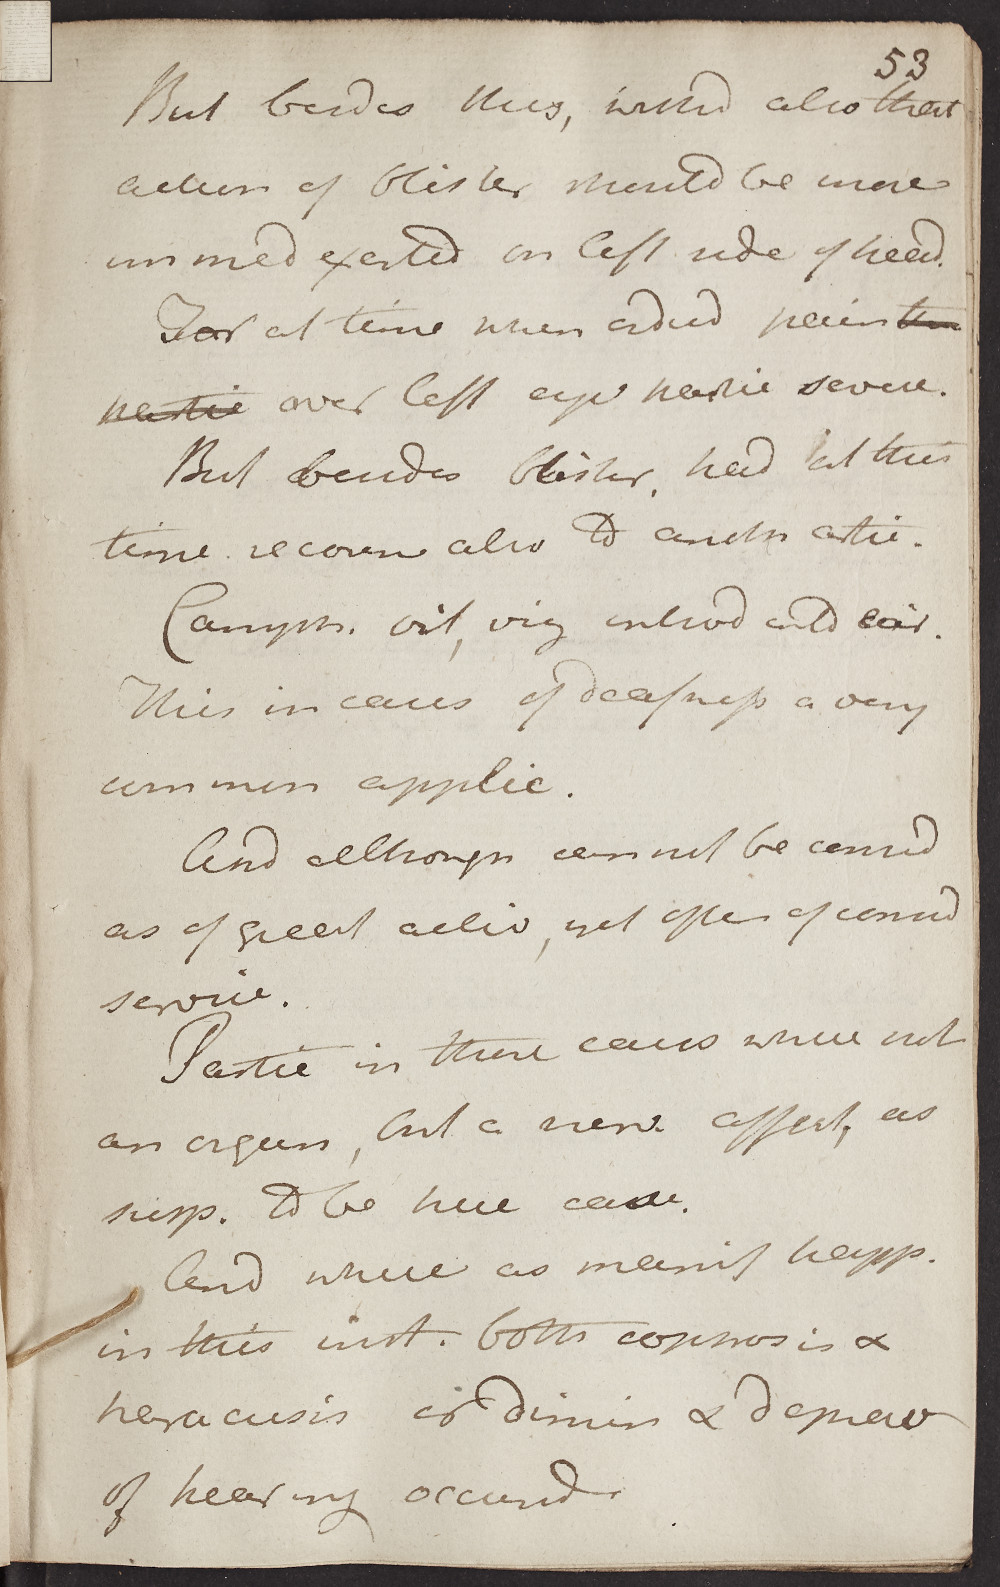 53
But besides this, wishd also that
action of blister should be more
immed exerted on left side of head.
For at time when ordied pain
partic over left eye partic severe.
But besides blister, had at this
time recourse also to anoth artic.
Camph. oil, viz introd into ear.
This in cases of deafness a very
common applic.
And although cannot be considd
as of great activ, yet often of considd
service.
Partic in those cases where not
an organ, but a nerv. affect, as
susp. to be here case.
And where as manif happ.
in this inst. both cophosis &
paracusis or dimin & deprav
of hearing occurred.